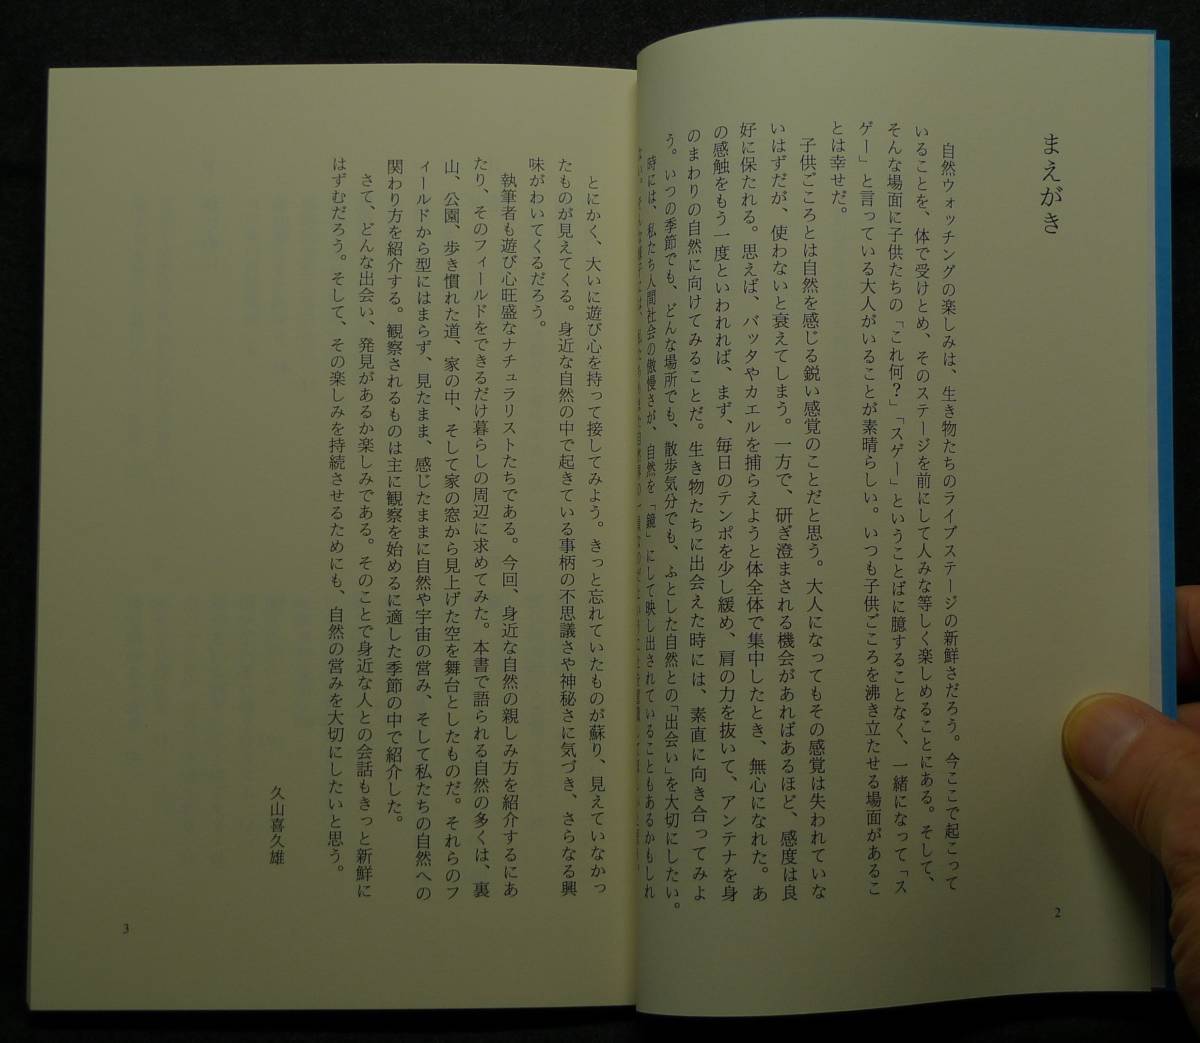 まえがき
自然ウォッチングの楽しみは、生き物たちのライブステージの新鮮さだろう。今ここで起こって
いることを、体で受けとめ、そのステージを前にして人みな等しく楽しめることにある。そして、
そんな場面に子供たちの「これ何？」「スゲー」ということばに臆することなく、一緒になって「ス
ゲー」と言っている大人がいることが素晴らしい。いつも子供ごころを沸き立たせる場面があるこ
とは幸せだ。
子供ごころとは自然を感じる鋭い感覚のことだと思う。大人になってもその感覚は失われていな
いはずだが、使わないと衰えてしまう。一方で、研ぎ澄まされる機会があればあるほど、感度は良
好に保たれる。思えば、バッタやカエルを捕らえようと体全体で集中したとき、無心になれた。あ
の感触をもう一度といわれれば、まず、毎日のテンポを少し緩め、肩の力を抜いて、アンテナを身
のまわりの自然に向けてみることだ。生き物たちに出会えた時には、素直に向き合ってみよ
う。いつの季節でも、どんな場所でも、散歩気分でも、ふとした自然との「出会い」を大切にしたい。
時には、私たち人間社会の傲慢さが、自然を「鏡」にして映し出されていることもあるかもしれ
2
とにかく、大いに遊び心を持って接してみよう。きっと忘れていたものが蘇り、見えていなかっ
たものが見えてくる。身近な自然の中で起きている事柄の不思議さや神秘さに気づき、さらなる興
味がわいてくるだろう。
執筆者も遊び心旺盛なナチュラリストたちである。今回、身近な自然の親しみ方を紹介するにあ
たり、そのフィールドをできるだけ暮らしの周辺に求めてみた。本書で語られる自然の多くは、裏
山、公園、歩き慣れた道、家の中、そして家の窓から見上げた空を舞台としたものだ。それらのフ
ィールドから型にはまらず、見たまま、感じたままに自然や宇宙の営み、そして私たちの自然への
関わり方を紹介する。観察されるものは主に観察を始めるに適した季節の中で紹介した。
さて、どんな出会い、発見があるか楽しみである。そのことで身近な人との会話もきっと新鮮に
はずむだろう。そして、その楽しみを持続させるためにも、自然の営みを大切にしたいと思う。
久山喜久雄
3